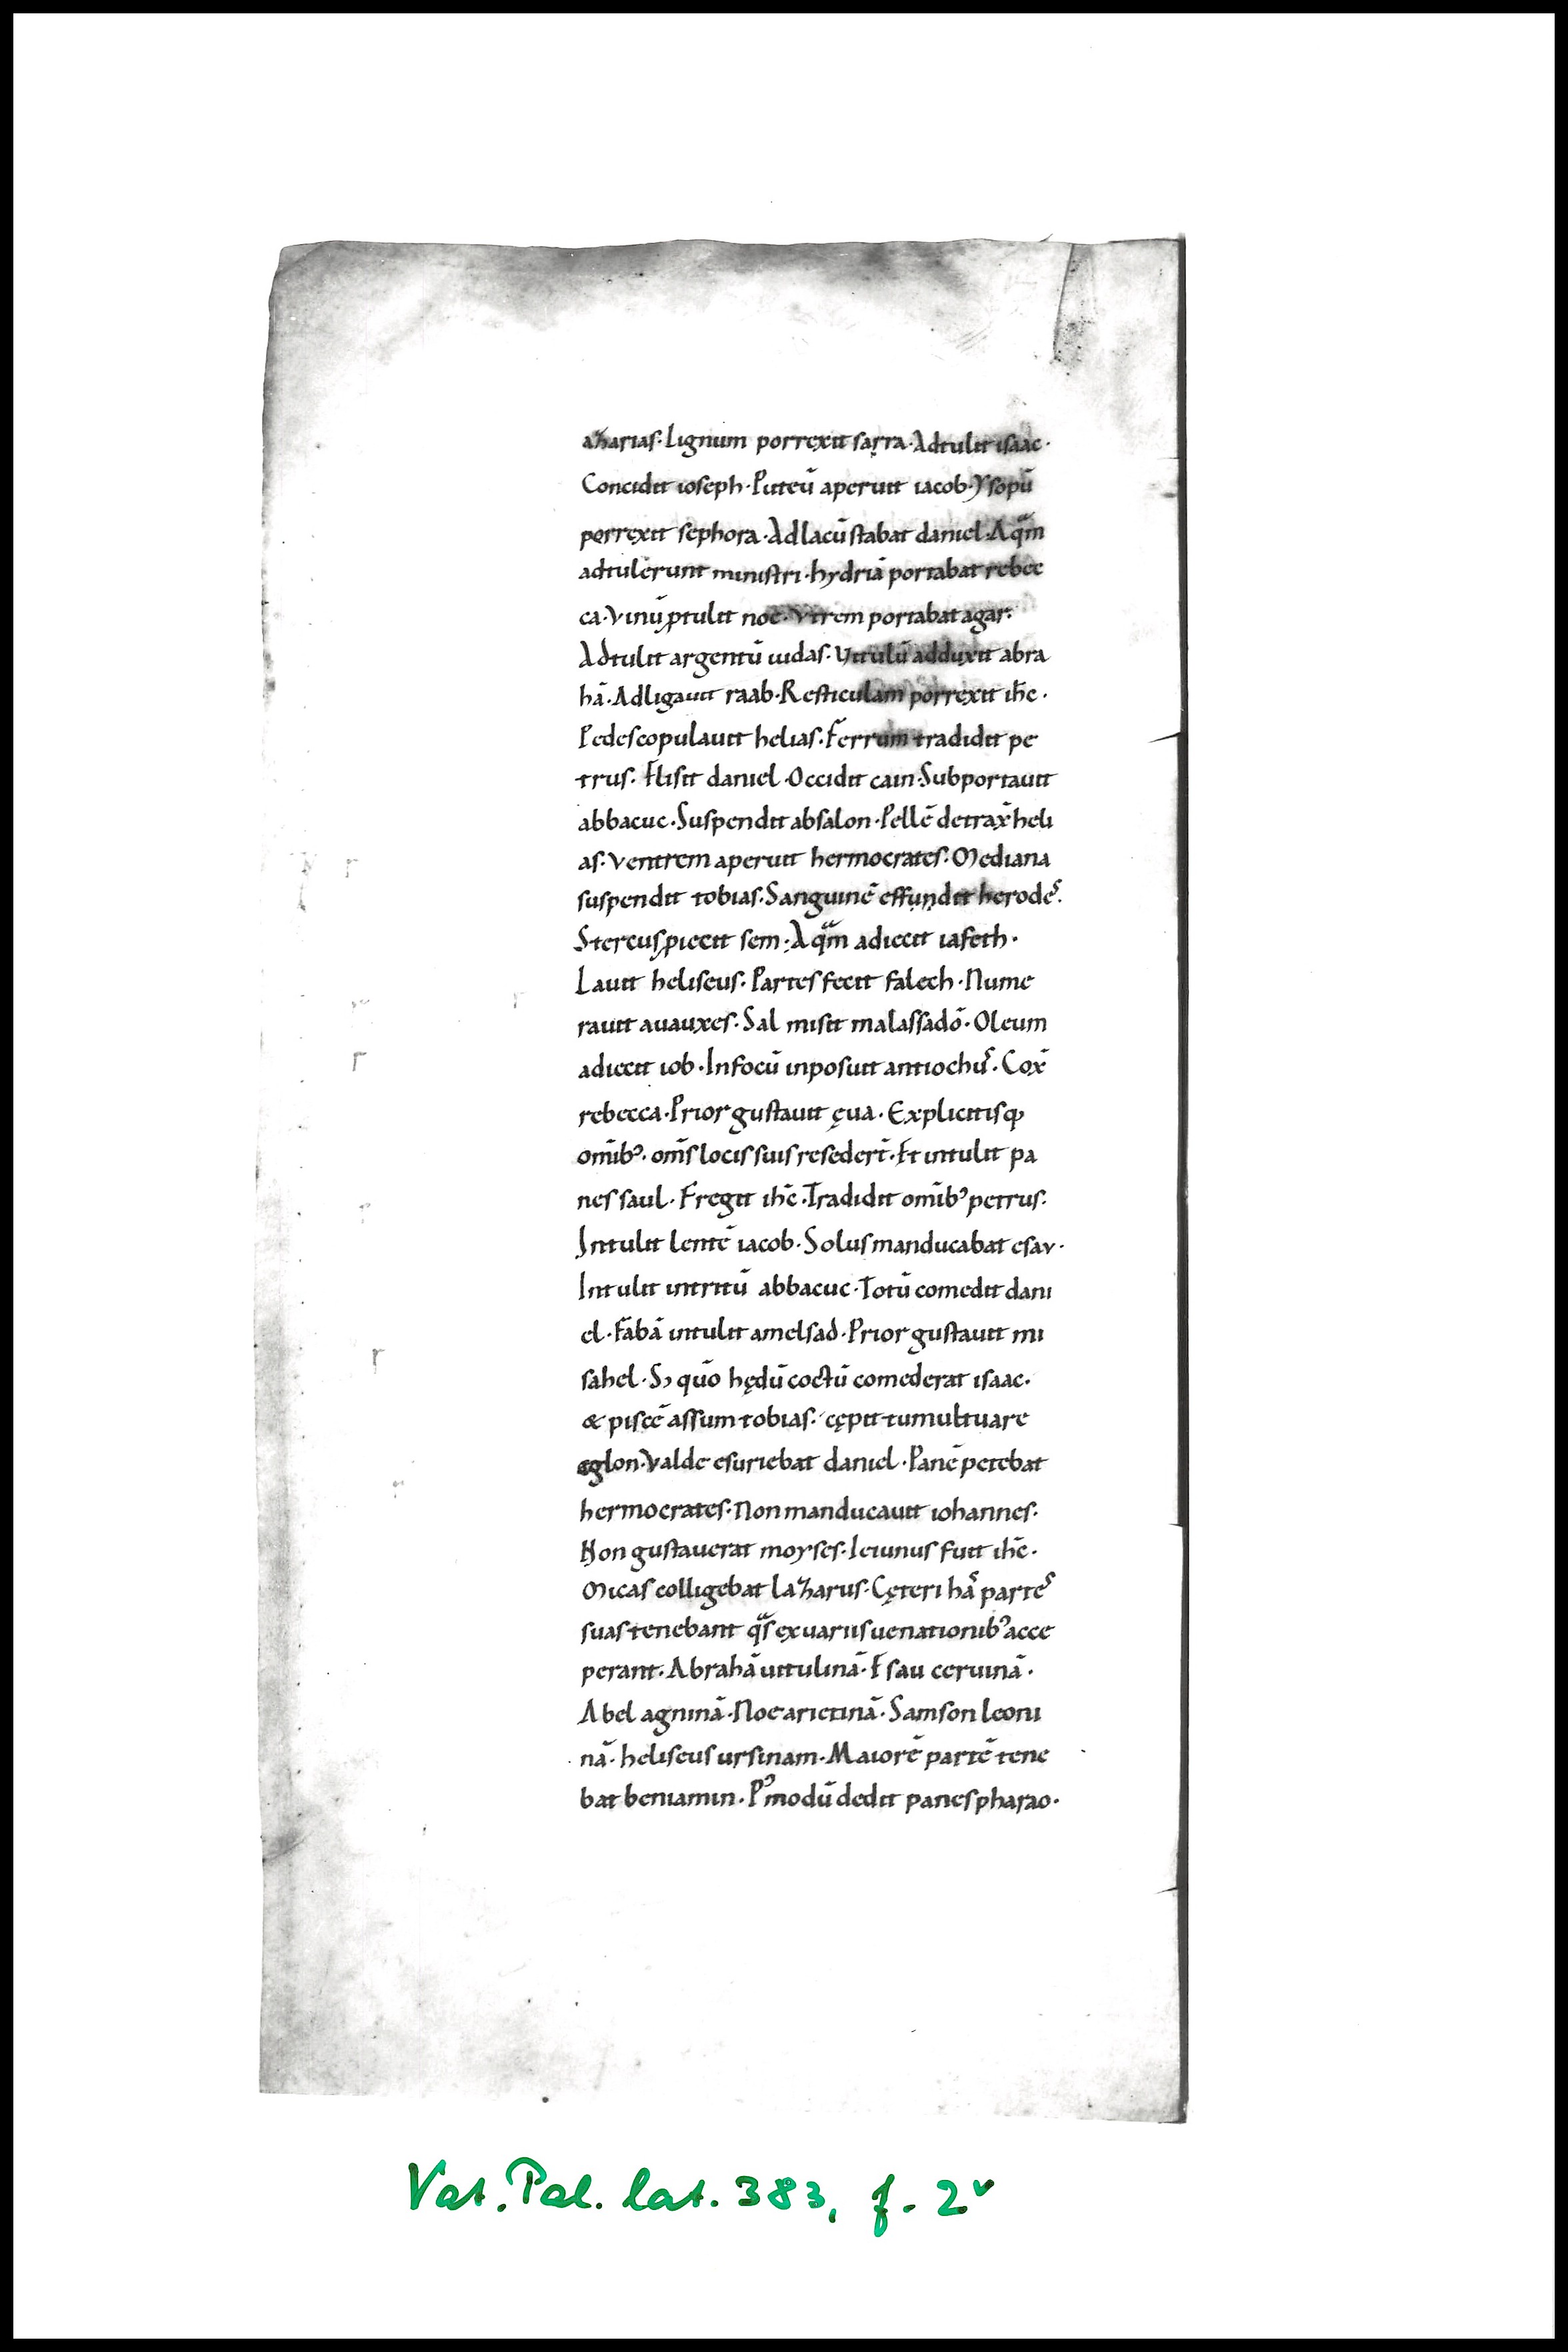 aʒarias· Lignum porrexit sarra· Adtulit isaac·
Concidit ioseph· Puteū aperuit iacob· Ysopū
porrexit sephora· Ad lacū stabat daniel· Aqᵃm
adtulerunt ministri· hydriā portabat rebec
ca· Vinū ꝓtulit noe· Vtrem portabat agar·
Adtulit argentū iudas· Vitulū adduxit abra
hā· Adligauit raab· Resticulam porrexit ihc̄·
Pedes copulauit helias· Ferrum tradidit pe
trus· Elisit daniel· Occidit cain· Subportauit
abbacuc· Suspendit absalon· Pellē detrax̄ heli
as· Ventrem aperuit hermocrates· Mediana
suspendit tobias· Sanguinē effundit herodes·
Stercus ꝓiecit sem· Aqᵃm adiecit iafeth·
Lauit heliseus· Partes fecit falech· Nume
rauit auauxes· Sal misit malassadō· Oleum
adiecit iob· In focū inposuit antiochus· Cox̄
rebecca· Prior gustauit ęua· Explicitisq;
om̄ibꝰ· om̄s locis suis resedert̄· Et intulit pa
nes saul· Fregit ihc̄· Tradidit om̄ibꝰ petrus·
Intulit lentē iacob· Solus manducabat esav·
Intulit intritū abbacuc· Totū comedit dani
el· Fabā intulit amelsad· Prior gustauit mi
sahel· S; quō hędū coctū comederat isaac·
& piscē assum tobias· cępit tumultuare
eglon· Valde esuriebat daniel· Panē petebat
hermocrates· Non manducauit iohannes·
Non gustauerat moyses· Ieiunus fuit ihc̄·
Micas colligebat laʒarus· Cęteri hās partes
suas tenebant qᵃs ex uariis uenationibꝰ acce
perant· Abrahā uitulinā· Esau ceruinā·
Abel agninā· Noe arietinā· Samson leoni
nā· heliseus ursinam· Maiorē partē tene
bat beniamin· Pꝰmodū dedit panes pharao·
Vat. Pal. lat. 383, f. 2ᵛ